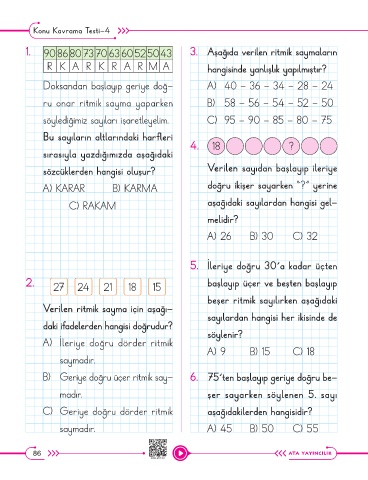 Konu Kavrama Testi-4
1.
90 86 80 73 70 63 60 52 50 43
R K A R K R A R M A
Doksandan başlayıp geriye doğ-
ru onar ritmik sayma yaparken
söylediğimiz sayıları işaretleyelim.
Bu sayıların altlarındaki harfleri
sırasıyla yazdığımızda aşağıdaki
sözcüklerden hangisi oluşur?
A) KARAR B) KARMA
C) RAKAM
2.
27 24 21 18 15
Verilen ritmik sayma için aşağı-
daki ifadelerden hangisi doğrudur?
A) İleriye doğru dörder ritmik
saymadır.
B) Geriye doğru üçer ritmik say-
madır.
C) Geriye doğru dörder ritmik
saymadır.
3. Aşağıda verilen ritmik saymaların
hangisinde yanlışlık yapılmıştır?
A) 40 - 36 - 34 - 28 - 24
B) 58 - 56 - 54 - 52 - 50
C) 95 - 90 - 85 - 80 - 75
4.
18 ?
Verilen sayıdan başlayıp ileriye
doğru ikişer sayarken "?" yerine
aşağıdaki sayılardan hangisi gel-
melidir?
A) 26 B) 30 C) 32
5. İleriye doğru 30'a kadar üçten
başlayıp üçer ve beşten başlayıp
beşer ritmik sayılırken aşağıdaki
sayılardan hangisi her ikisinde de
söylenir?
A) 9 B) 15 C) 18
6. 75'ten başlayıp geriye doğru be-
şer sayarken söylenen 5. sayı
aşağıdakilerden hangisidir?
A) 45 B) 50 C) 55
86
ATA YAYINCILIK